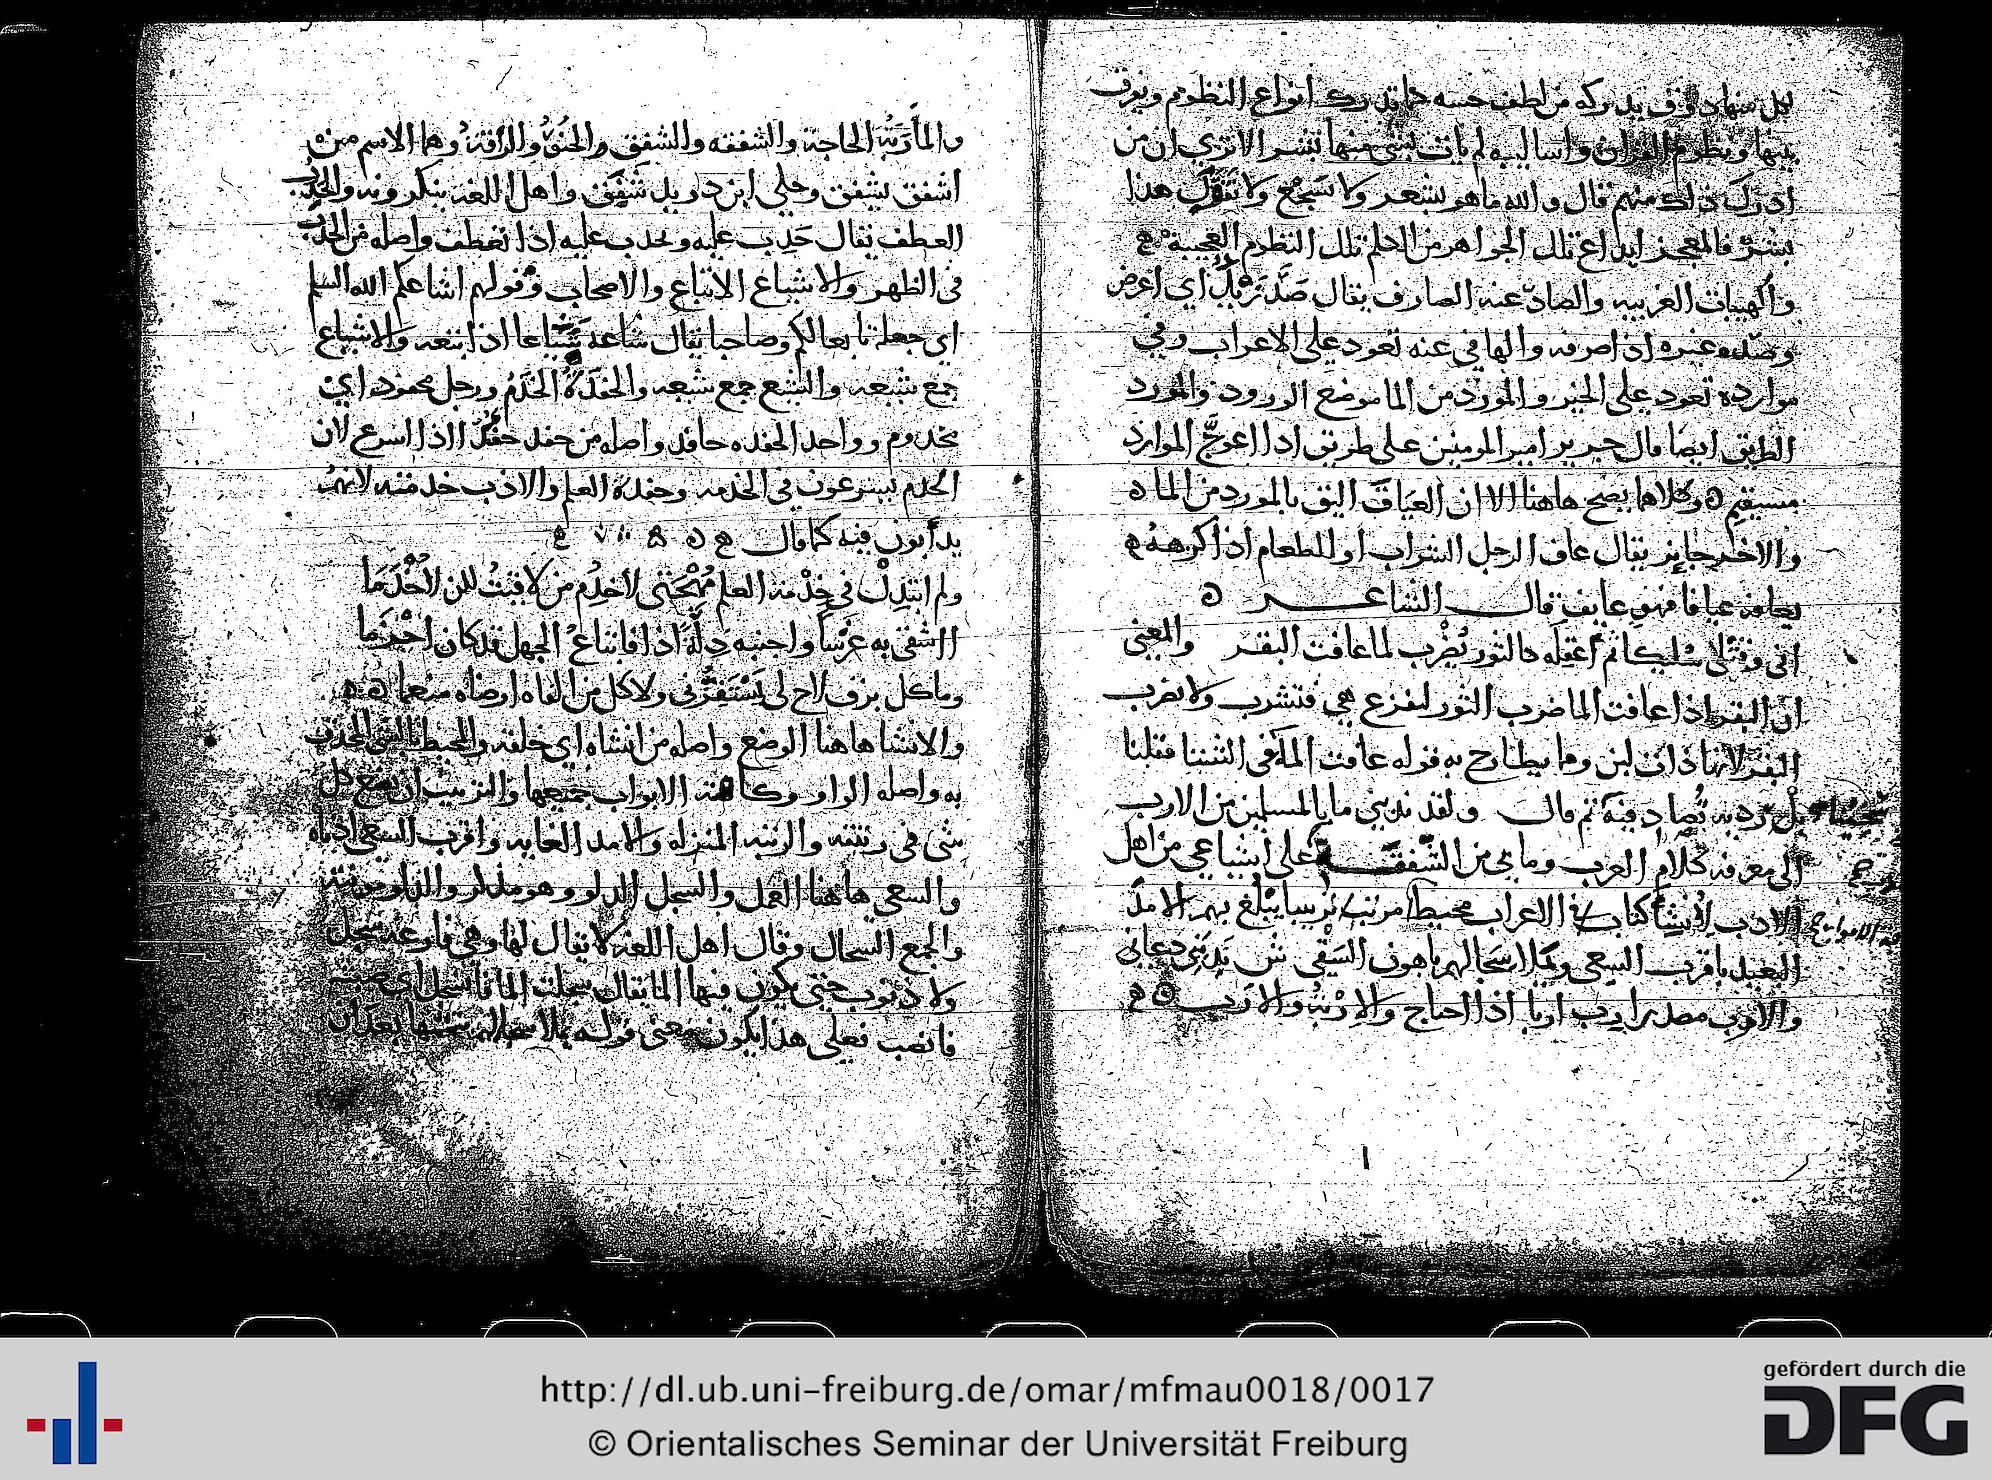 لكل منها ذوق يدركه من لطف حسه كما تدرك انواع النظوم ويفرق
بينها ونظوم القران واساليبه لم يات بشي منها بشر الا ترى ان من
ادرك ذلك منهم قال والله ما هو بشعر ولا سجع ولا تقول هذا
بشر فالمعجز ابداع تلك الجواهر من الكلم تلك النظوم العجيبة
والهيات الغريبه والصاد عنه الصارف يقال صد زيد اي اعرض
وصده غيره اذا صرفه والها في عنه تعود على الاعراب وفي
موارده تعود على الخبر والمورد من الما موضع الورود والمورد
الطريق ايضا قال جرير امير المومنين على طريق اذا اعوج الموارد
مستقيم وكلاهما يصح هاهنا الا ان العياف اليق بالمورد من الما
والاخر جايز يقال عاف الرجل الشراب او الطعام اذا كرهه
يعافه عيافا فهو عايف قال الشاعر
اني وقتلي سليكا ثم اعقله كالثور يضرب لما عافت البقر والمعنى
ان البقر اذا عافت الما ضرب الثور لتفزع هي فتشرب ولا تضرب
البقر لانها ذات لبن ومما يطارح به قوله عافت الما في الشتا فقلنا
بل رديه تصادفيه ثم قال ولقد ندبني ما بالمسلمين من الارب
الى معرفة كلام العرب وما بي من الشفقة على اشياعي من اهل
الادب لانشا كتاب في الاعراب محيط مرتب ترتيبا يبلغ بهم الامد
البعيد باقرب السعي ويملا سجالهم باهون السقي ش ندبني دعاني
والارب مصدر ارب اربا اذا احتاج والاربة والارب
والماربة الحاجة والشفقه والشفق والحنو والرافة وهما الاسم من
اشفق يشفق وحكى ابن دريد شفق واهل اللغه ينكرونه والحدب
العطف يقال حدب عليه وتحدب عليه اذا تعطف واصله من الحدب
في الظهر والاشياع الاتباع والاصحاب وقولهم اشاعكم الله السلم
اي جعله تابعا لكم وصاحبا يقال شاعه شياعا اذا تبعه والاشياع
جمع شيعه والشيع جمع شيعه والحفدة الخدم ورجل محفود اي
مخدوم وواحد الحفده حافد واصله من حفد حفدا اذا اسرع لان
الخدم يسرعون في الخدمه وحفدة العلم والادب خدمته لانهم
يدأبون فيه كما قال
ولم ابتذل في خدمة العلم مهجتي لاخدم من لاقيت لكن لاخدما
ااشقى به غرسا واجنيه ذلة اذا فابتاع الجهل قد كان احزما
وما كل برق لاح لي يستفزني ولا كل من القاه ارضاه منعما
والانشا هاهنا الوضع واصله من انشاه اي خلقه والمحيط بالشي المحدق
به واصله الواو وكا الابواب جميعها والترتيب ان يضع كل
شي في رتبته والرتبه المنزله والامد الغايه واقرب السعي ادناه
والسعي هاهنا العمل والسجل الدلو وهو مذكر والدلو مونثة
والجمع السجال وقال اهل اللغه لا يقال لها وهي فارغه سجل
ولا ذنوب حتى يكون فيها الما يقال سجلت الما فانسجل اي صببته
فانصب فعلى هذا يكون معنى قوله يملا سجالهم بعد ان
http://dl.ub.uni-freiburg.de/omar/mfmau0018/0017
© Orientalisches Seminar der Universität Freiburg
gefördert durch die
DFG